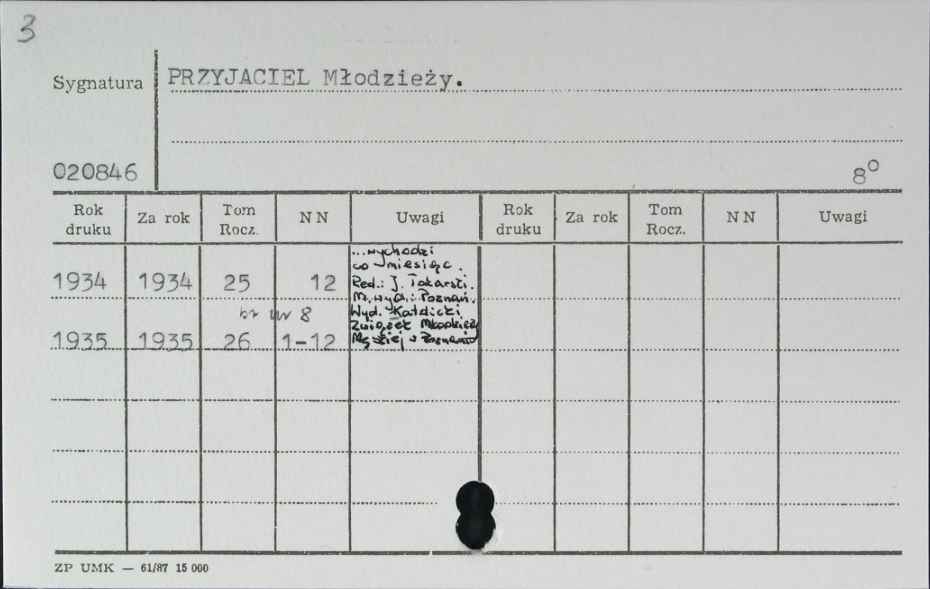 3
Sygnatura PRZYJACIEL Młodzieży.
020846 8°
Rok druku Za rok Tom Rocz. NN Uwagi Rok druku Za rok Tom Rocz. NN Uwagi
...wychodzi
co miesiąc.
1934 1934 25 12 Red.: J. Tokarski.
M. wyd.: Poznań.
br nr 8 Wyd. Katolicki
Związek Młodzieży
1935 1935 26 1-12 Męskiej w Poznaniu
ZP UMK — 61/87 15 000